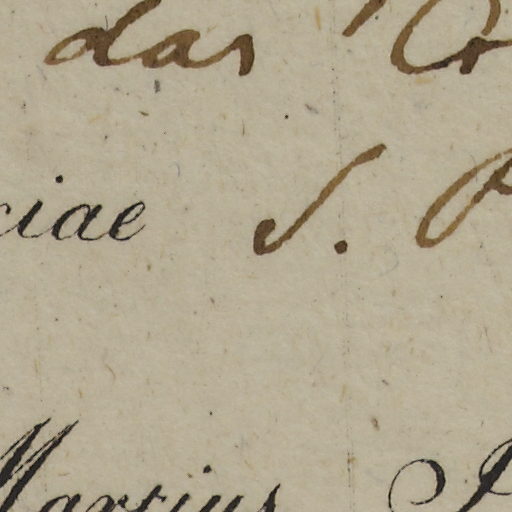 das
ciae S. P
Martius P